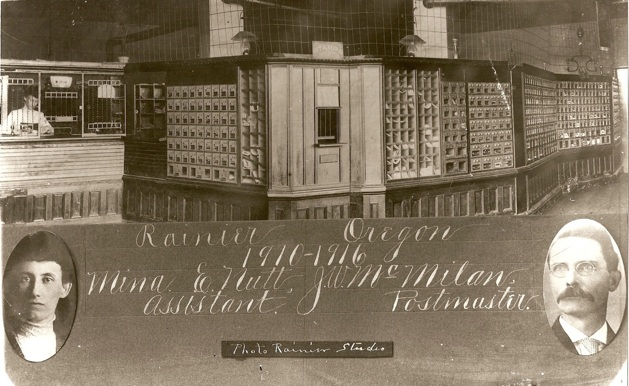 Rainier Oregon
1910-1916
Mina E. Nutt. J.W. McMilan.
Assistant. Postmaster.
Photo Rainier Studio